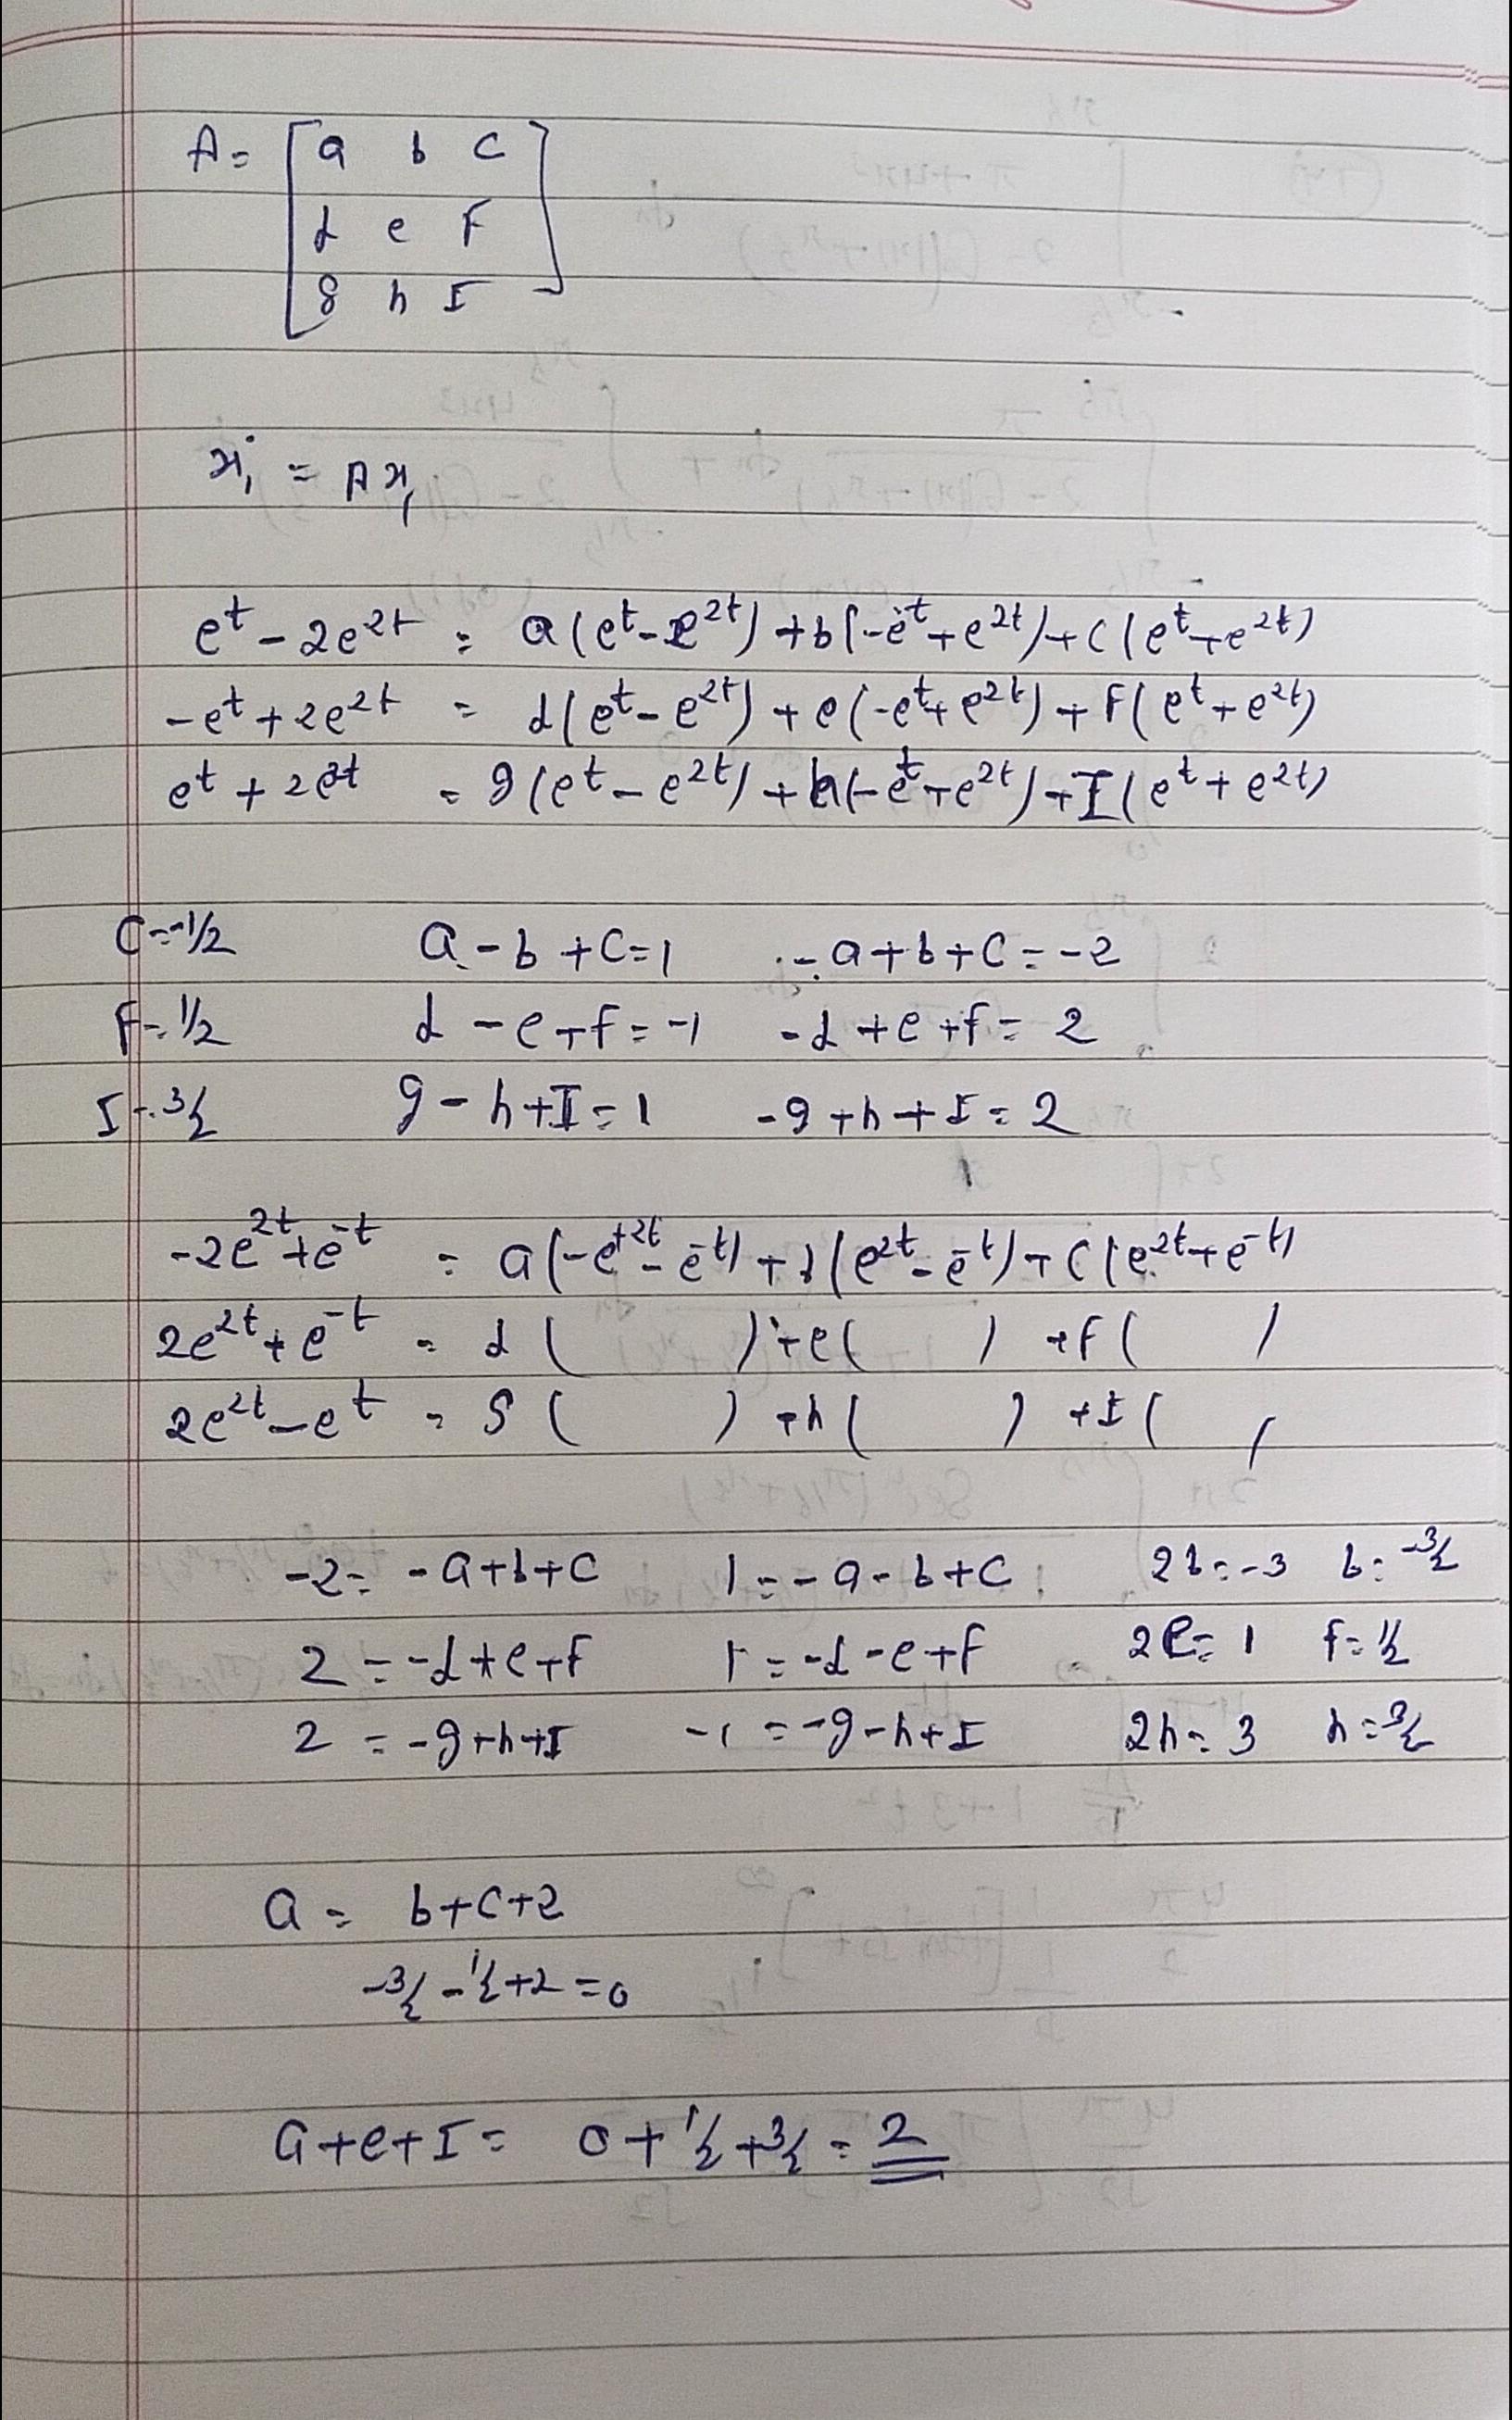 A = [ a b c
d e F
g h I ]
ẋ₁ = A x₁
e^t - 2e^2t = a(e^t - e^2t) + b(-e^t + e^2t) + c(e^t + e^2t)
-e^t + 2e^2t = d(e^t - e^2t) + e(-e^t + e^2t) + F(e^t + e^2t)
e^t + 2e^2t = g(e^t - e^2t) + h(-e^t + e^2t) + I(e^t + e^2t)
C = -1/2 a - b + C = 1 - a + b + C = -2
F = 1/2 d - e + f = -1 - d + e + f = 2
I = 3/2 g - h + I = 1 - g + h + I = 2
-2e^2t + e^-t = a(-e^+2t - e^-t) + b(e^2t - e^-t) + C(e^2t + e^-t)
2e^2t + e^-t = d( ) + e( ) + f( )
2e^2t - e^t = g( ) + h( ) + I( )
-2 = - a + b + c 1 = - a - b + c 2b = -3 b = -3/2
2 = - d + e + f 1 = - d - e + f 2e = 1 f = 1/2
2 = - g + h + I -1 = - g - h + I 2h = 3 h = 3/2
a = b + c + 2
-3/2 - 1/2 + 2 = 0
a + e + I = 0 + 1/2 + 3/2 = 2